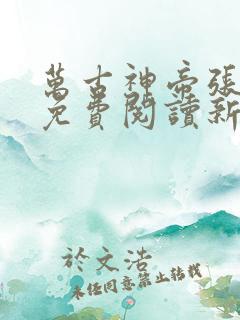 萬古神帝張
免費閱讀新
於文浩
未經同意禁止轉載